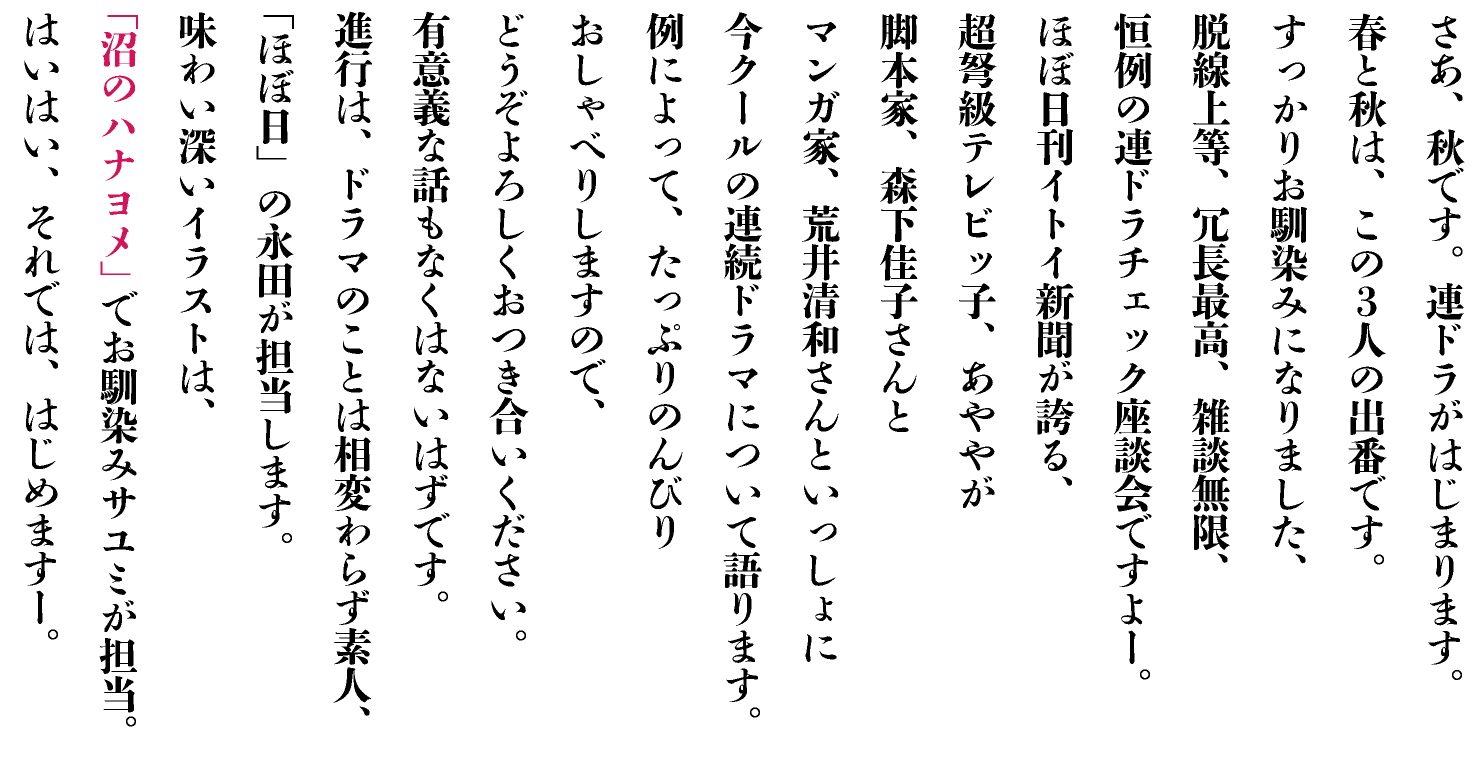 さあ、秋です。連ドラがはじまります。
春と秋は、この３人の出番です。
すっかりお馴染みになりました、
脱線上等、冗長最高、雑談無限、
恒例の連ドラチェック座談会ですよー。
ほぼ日刊イトイ新聞が誇る、
超弩級テレビッ子、あややが
脚本家、森下佳子さんと
マンガ家、荒井清和さんといっしょに
今クールの連続ドラマについて語ります。
例によって、たっぷりのんびり
おしゃべりしますので、
どうぞよろしくおつき合いください。
有意義な話もなくはないはずです。
進行は、ドラマのことは相変わらず素人、
「ほぼ日」の永田が担当します。
味わい深いイラストは、
「沼のハナヨメ」でお馴染みサユミが担当。
はいはい、それでは、はじめますー。